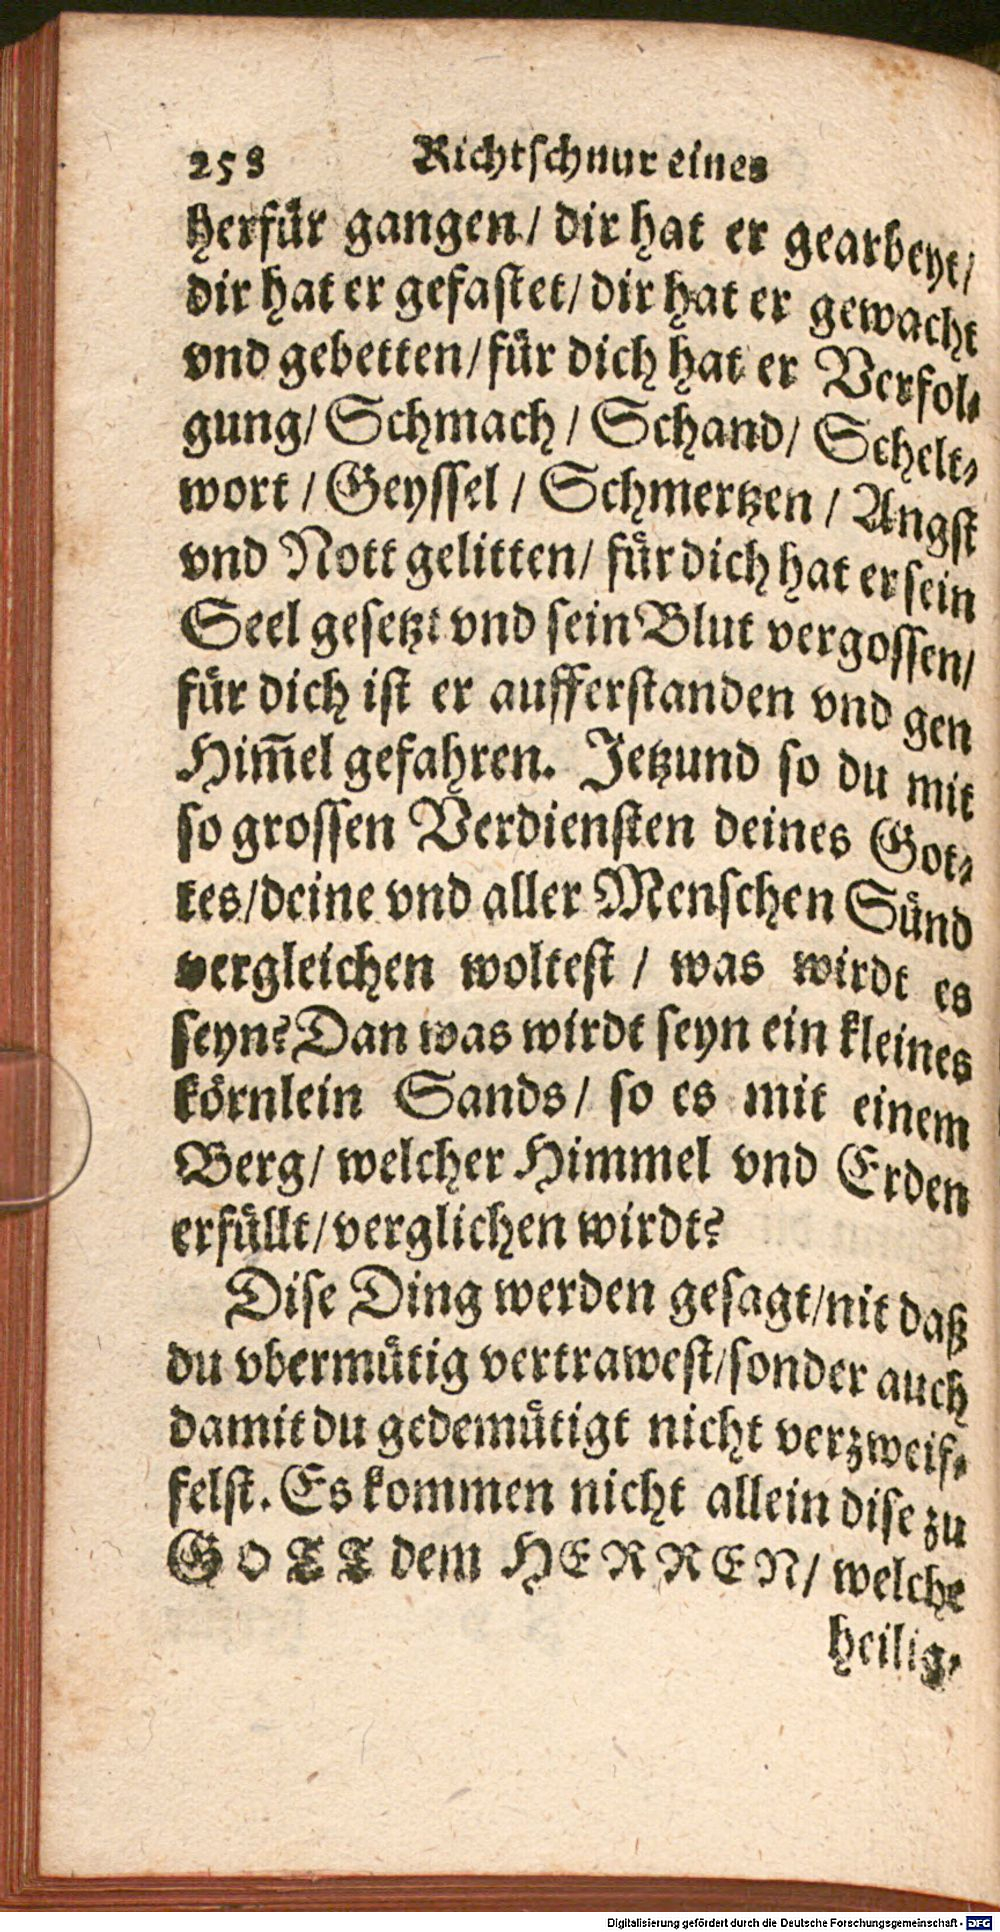 258 Richtſchnur eines
herfuͤr gangen/ dir hat er gearbeyt/
dir hat er gefaſtet/ dir hat er gewacht
vnd gebetten/ fuͤr dich hat er Verfol⸗
gung/ Schmach/ Schand/ Schelt⸗
wort/ Geyſſel/ Schmertzen/ Angſt
vnd Nott gelitten/ fuͤr dich hat er ſein
Seel geſetzt vnd ſein Blut vergoſſen/
fuͤr dich iſt er aufferſtanden vnd gen
Him̃el gefahren. Jetzund ſo du mit
ſo groſſen Verdienſten deines Got⸗
tes/ deine vnd aller Menſchen Suͤnd
vergleichen wolteſt/ was wirdt es
ſeyn? Dan was wirdt ſeyn ein kleines
koͤrnlein Sands/ ſo es mit einem
Berg/ welcher Himmel vnd Erden
erfuͤllt/ verglichen wirdt?
Diſe Ding werden geſagt/ nit daß
du vbermuͤtig vertraweſt/ ſonder auch
damit du gedemuͤtigt nicht verzweif⸗
felſt. Es kommen nicht allein diſe zu
GOTT dem HERREN/ welche
heilig⸗
Digitalisierung gefördert durch die Deutsche Forschungsgemeinschaft - DFG